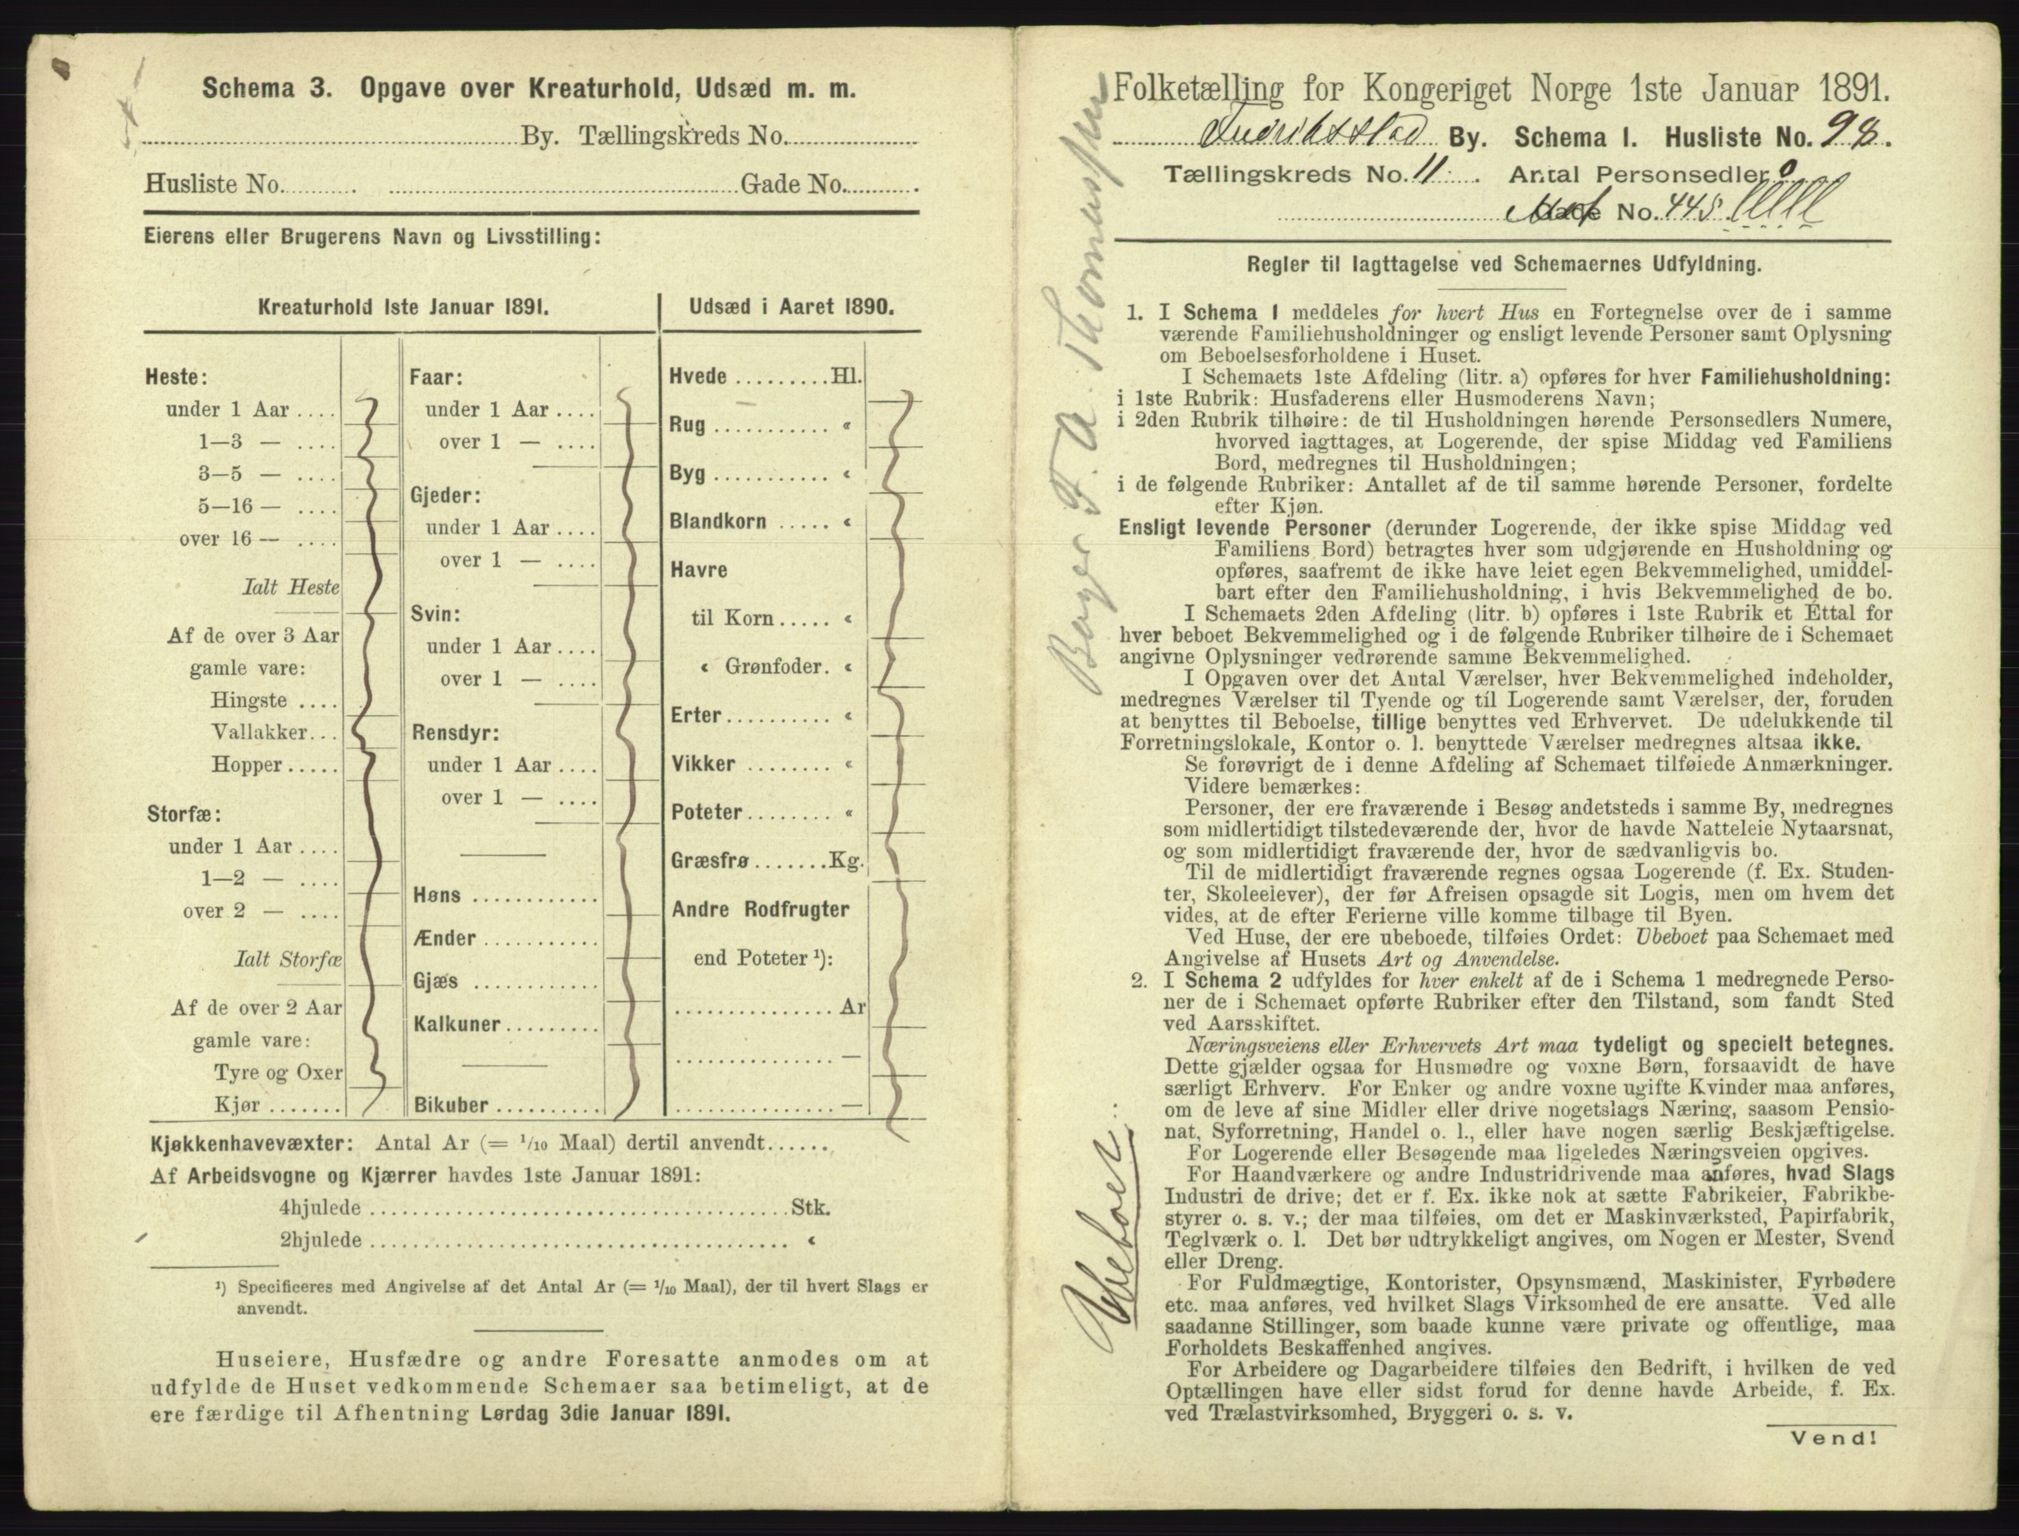 Schema 3. Opgave over Kreaturhold, Udsæd m. m.
By. Tællingskreds No.
Husliste No. Gade No.
Eierens eller Brugerens Navn og Livsstilling:
Kreaturhold 1ste Januar 1891.
Heste:
under 1 Aar
1—3 —
3—5 —
5—16 —
over 16 —
Ialt Heste
Af de over 3 Aar
gamle vare:
Hingste
Vallakker
Hopper
Storfæ:
under 1 Aar
1—2 —
over 2 —
Ialt Storfæ
Af de over 2 Aar
gamle vare:
Tyre og Oxer
Kjør
Faar:
under 1 Aar
over 1 —
Gjeder:
under 1 Aar
over 1 —
Svin:
under 1 Aar
over 1 —
Rensdyr:
under 1 Aar
over 1 —
Høns
Ænder
Gjæs
Kalkuner
Bikuber
Udsæd i Aaret 1890.
Hvede Hl.
Rug «
Byg «
Blandkorn «
Havre
til Korn «
« Grønfoder «
Erter «
Vikker «
Poteter «
Græsfrø Kg.
Andre Rodfrugter
end Poteter ¹):
Ar
—
—
Kjøkkenhavevæxter: Antal Ar (= 1/10 Maal) dertil anvendt
Af Arbeidsvogne og Kjærrer havdes 1ste Januar 1891:
4hjulede Stk.
2hjulede «
¹) Specificeres med Angivelse af det Antal Ar (= 1/10 Maal), der til hvert Slags er
anvendt.
Huseiere, Husfædre og andre Foresatte anmodes om at
udfylde de Huset vedkommende Schemaer saa betimeligt, at de
ere færdige til Afhentning Lørdag 3die Januar 1891.
F. A. Thomassen
Ubeboet.
Folketælling for Kongeriget Norge 1ste Januar 1891.
Fredrikstad By. Schema 1. Husliste No. 98.
Tællingskreds No. 11. Antal Personsedler 0
Gade No. 445.
Regler til Iagttagelse ved Schemaernes Udfyldning.
1. I Schema 1 meddeles for hvert Hus en Fortegnelse over de i samme
værende Familiehusholdninger og ensligt levende Personer samt Oplysning
om Beboelsesforholdene i Huset.
I Schemaets 1ste Afdeling (litr. a) opføres for hver Familiehusholdning:
i 1ste Rubrik: Husfaderens eller Husmoderens Navn;
i 2den Rubrik tilhøire: de til Husholdningen hørende Personsedlers Numere,
hvorved iagttages, at Logerende, der spise Middag ved Familiens
Bord, medregnes til Husholdningen;
i de følgende Rubriker: Antallet af de til samme hørende Personer, fordelte
efter Kjøn.
Ensligt levende Personer (derunder Logerende, der ikke spise Middag ved
Familiens Bord) betragtes hver som udgjørende en Husholdning og
opføres, saafremt de ikke have leiet egen Bekvemmelighed, umiddel-
bart efter den Familiehusholdning, i hvis Bekvemmelighed de bo.
I Schemaets 2den Afdeling (litr. b) opføres i 1ste Rubrik et Ettal for
hver beboet Bekvemmelighed og i de følgende Rubriker tilhøire de i Schemaet
angivne Oplysninger vedrørende samme Bekvemmelighed.
I Opgaven over det Antal Værelser, hver Bekvemmelighed indeholder,
medregnes Værelser til Tyende og til Logerende samt Værelser, der, foruden
at benyttes til Beboelse, tillige benyttes ved Erhvervet. De udelukkende til
Forretningslokale, Kontor o. l. benyttede Værelser medregnes altsaa ikke.
Se forøvrigt de i denne Afdeling af Schemaet tilføiede Anmærkninger.
Videre bemærkes:
Personer, der ere fraværende i Besøg andetsteds i samme By, medregnes
som midlertidigt tilstedeværende der, hvor de havde Natteleie Nytaarsnat,
og som midlertidigt fraværende der, hvor de sædvanligvis bo.
Til de midlertidigt fraværende regnes ogsaa Logerende (f. Ex. Studen-
ter, Skoleelever), der før Afreisen opsagde sit Logis, men om hvem det
vides, at de efter Ferierne ville komme tilbage til Byen.
Ved Huse, der ere ubeboede, tilføies Ordet: Ubeboet paa Schemaet med
Angivelse af Husets Art og Anvendelse.
2. I Schema 2 udfyldes for hver enkelt af de i Schema 1 medregnede Perso-
ner de i Schemaet opførte Rubriker efter den Tilstand, som fandt Sted
ved Aarsskiftet.
Næringsveiens eller Erhvervets Art maa tydeligt og specielt betegnes.
Dette gjælder ogsaa for Husmødre og voxne Børn, forsaavidt de have
særligt Erhverv. For Enker og andre voxne ugifte Kvinder maa anføres,
om de leve af sine Midler eller drive nogetslags Næring, saasom Pensio-
nat, Syforretning, Handel o. l., eller have nogen særlig Beskjæftigelse.
For Logerende eller Besøgende maa ligeledes Næringsveien opgives.
For Haandværkere og andre Industridrivende maa anføres, hvad Slags
Industri de drive; det er f. Ex. ikke nok at sætte Fabrikeier, Fabrikbe-
styrer o. s. v.; der maa tilføies, om det er Maskinværksted, Papirfabrik,
Teglværk o. l. Det bør udtrykkeligt angives, om Nogen er Mester, Svend
eller Dreng.
For Fuldmægtige, Kontorister, Opsynsmænd, Maskinister, Fyrbødere
etc. maa anføres, ved hvilket Slags Virksomhed de ere ansatte. Ved alle
saadanne Stillinger, som baade kunne være private og offentlige, maa
Forholdets Beskaffenhed angives.
For Arbeidere og Dagarbeidere tilføies den Bedrift, i hvilken de ved
Optællingen have eller sidst forud for denne havde Arbeide, f. Ex.
ved Trælastvirksomhed, Bryggeri o. s. v.
Vend!